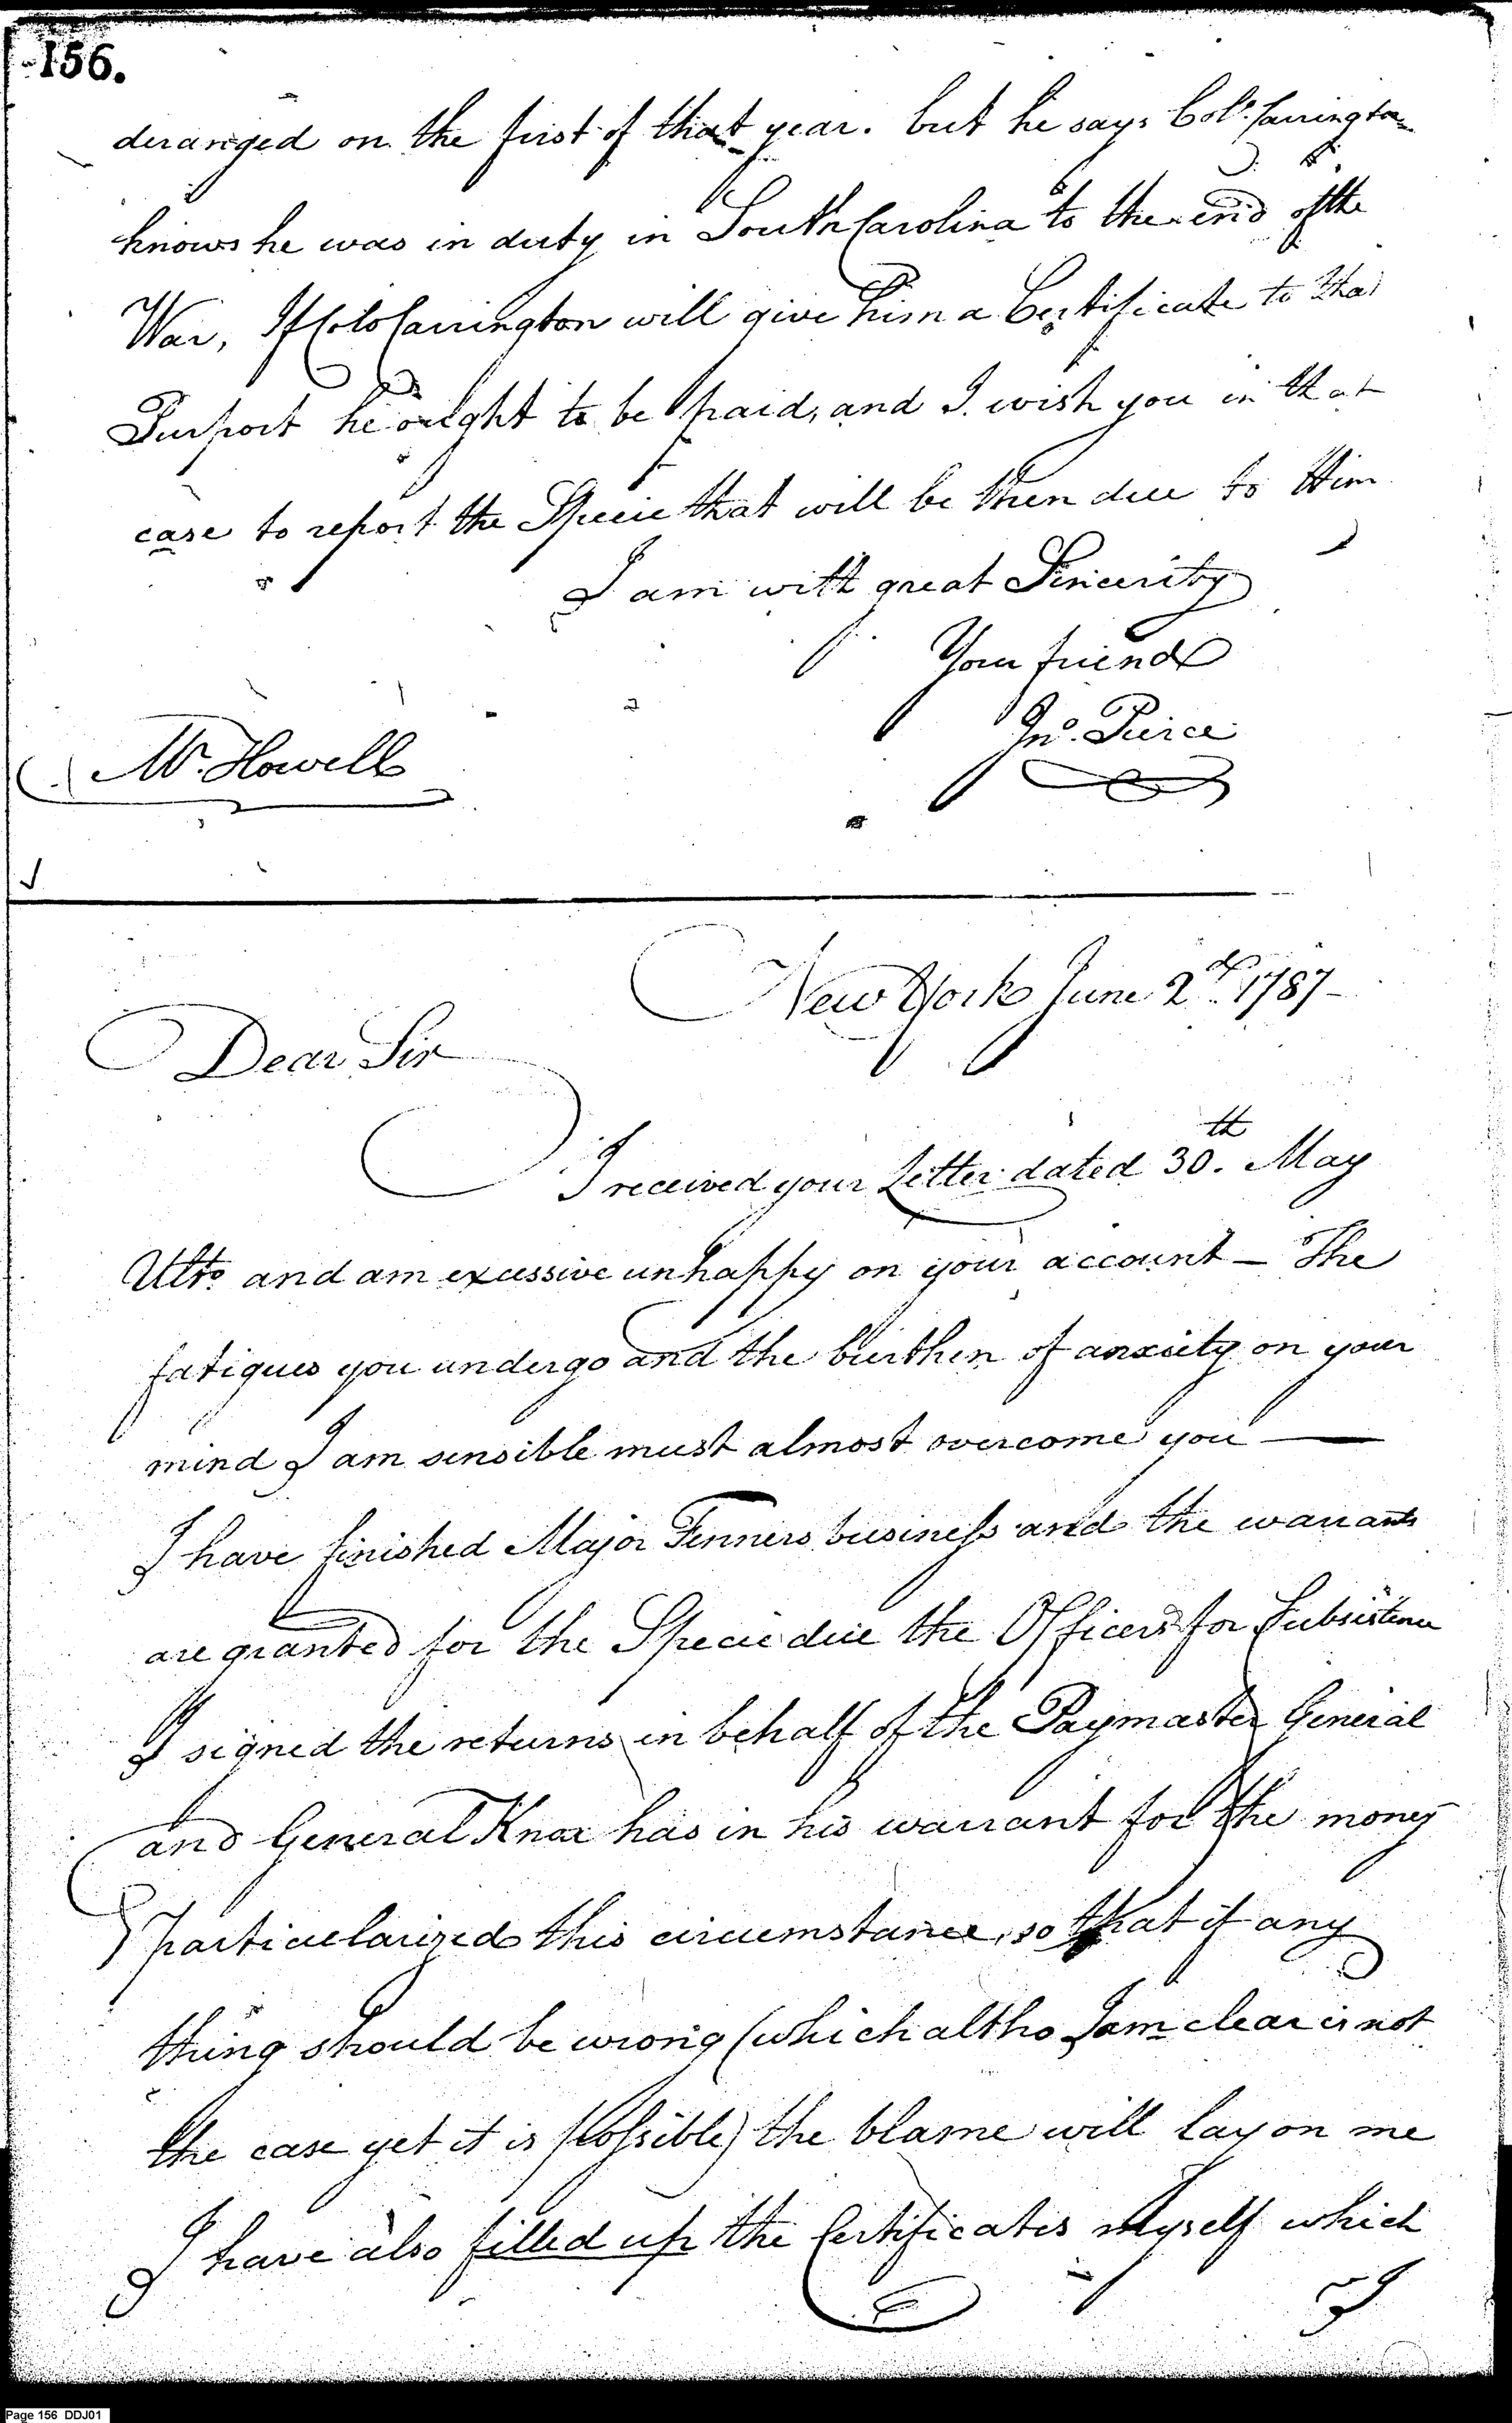 156.
deranged on the first of that year. but he says Colo. Carrington
knows he was in duty in South Carolina to the end of the
War, If Colo Carrington will give him a Certificate to that
Purport he ought to be paid, and I wish you in that
case to report the Specie that will be then due to Him
I am with great Sincerity
Your friend
Jno. Pierce
Mr. Howell
New York June 2d. 1787-
Dear Sir
I received your Letter dated 30.th May
Ulto. and am excessive unhappy on your account — The
fatigues you undergo and the burthen of anxiety on your
mind I am sensible must almost overcome you —
I have finished Major Fenners business and the warrants
are granted for the Specie due the Officers for Subsistence
I signed the returns in behalf of the Paymaster General
and General Knox has in his warrant for the money
Particularized this circumstance, so that if any
thing should be wrong (which altho I am clear is not
the case yet it is possible) the blame will lay on me
I have also filled up the Certificates myself which
I
Page 156 DDJ01